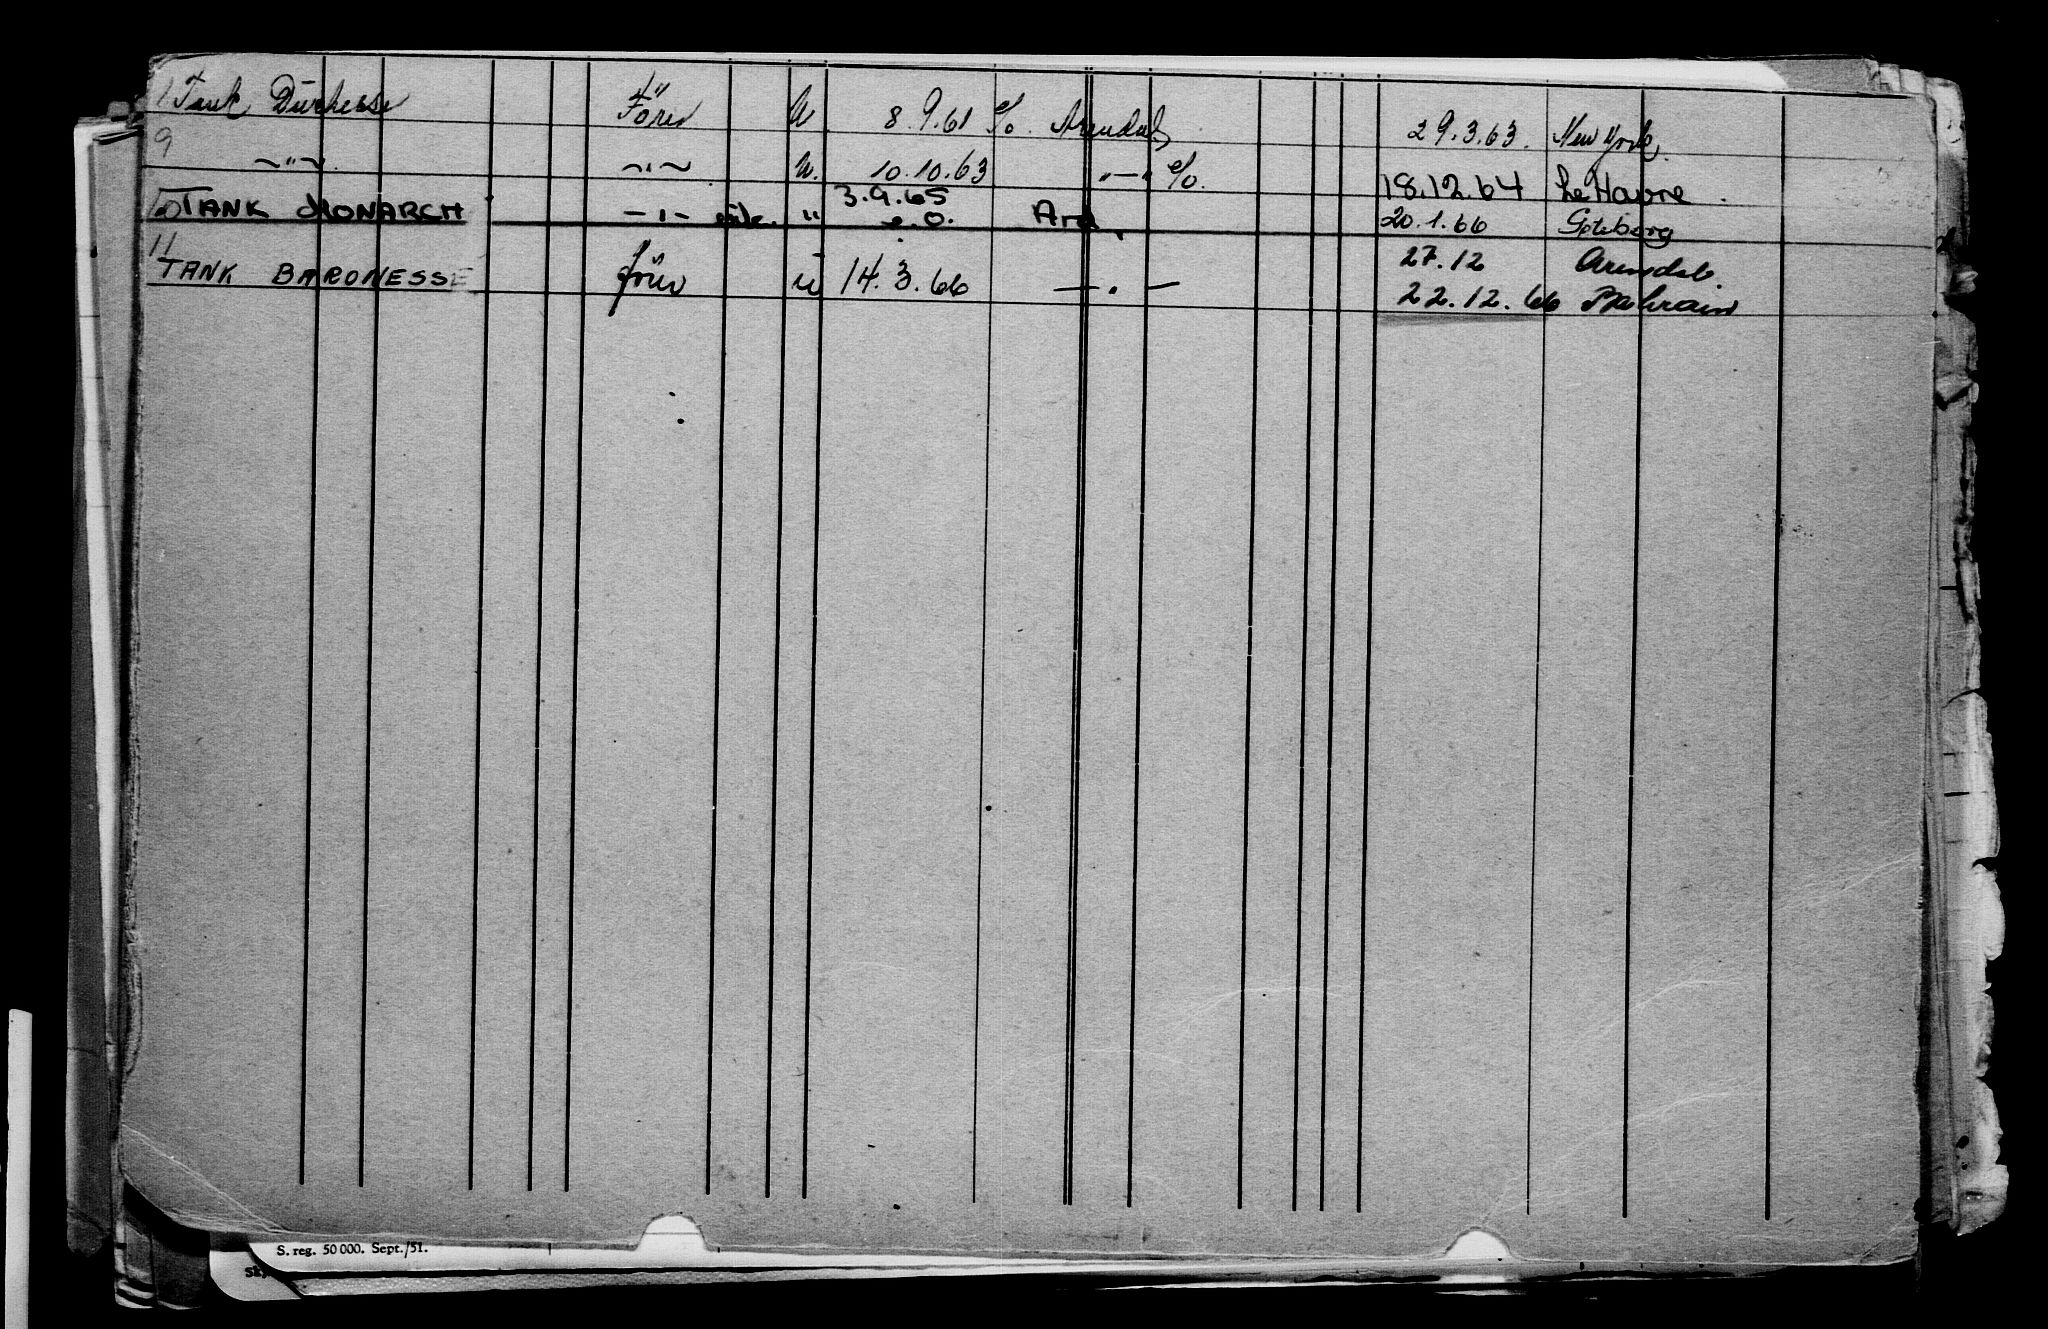 Tank Duchesse Fører U 8.9.61 e/o. Arendal 29.3.63. New York.
9 —"— —"— U. 10.10.63 —"— e/o. 18.12.64 Le Havre.
TANK MONARCH —"— " 3.9.65 e.o. Ard. 20.1.66 Göteborg
11 27.12 Arendal.
TANK BARONESSE fører u 14.3.66 —"— 22.12.66 Bahrain
S. reg. 50 000. Sept./51.